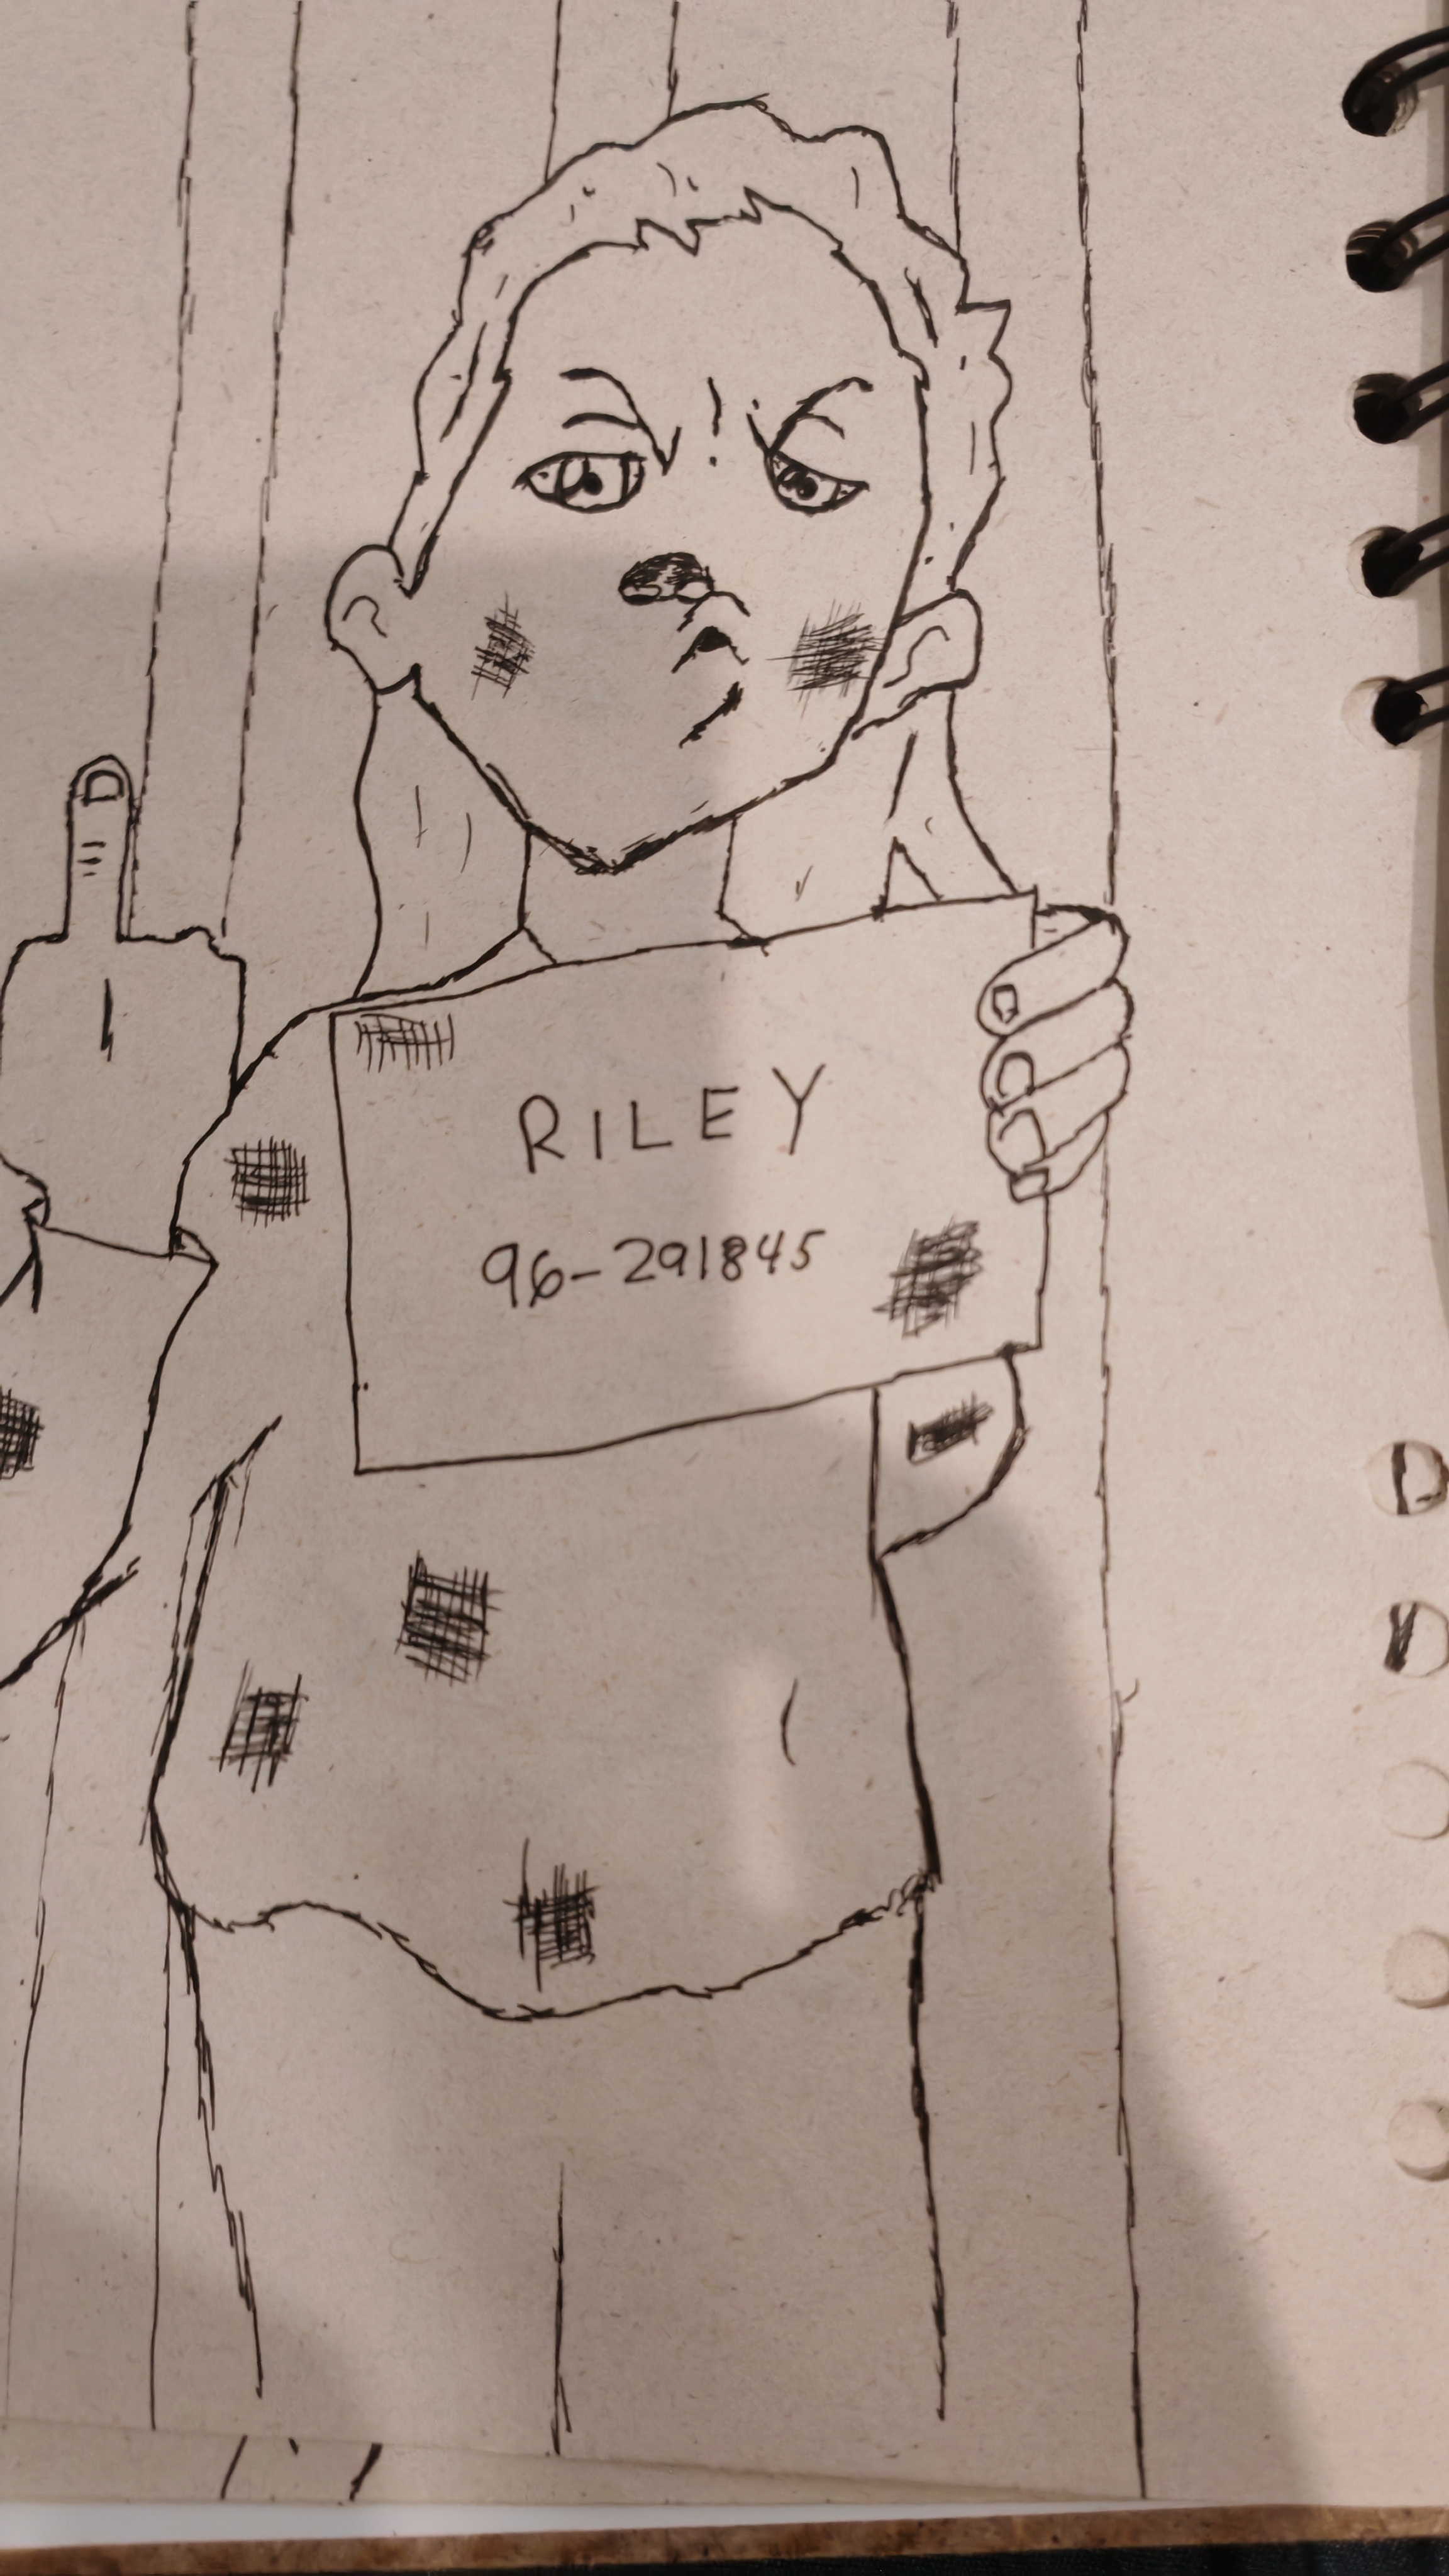 RILEY
96-291845